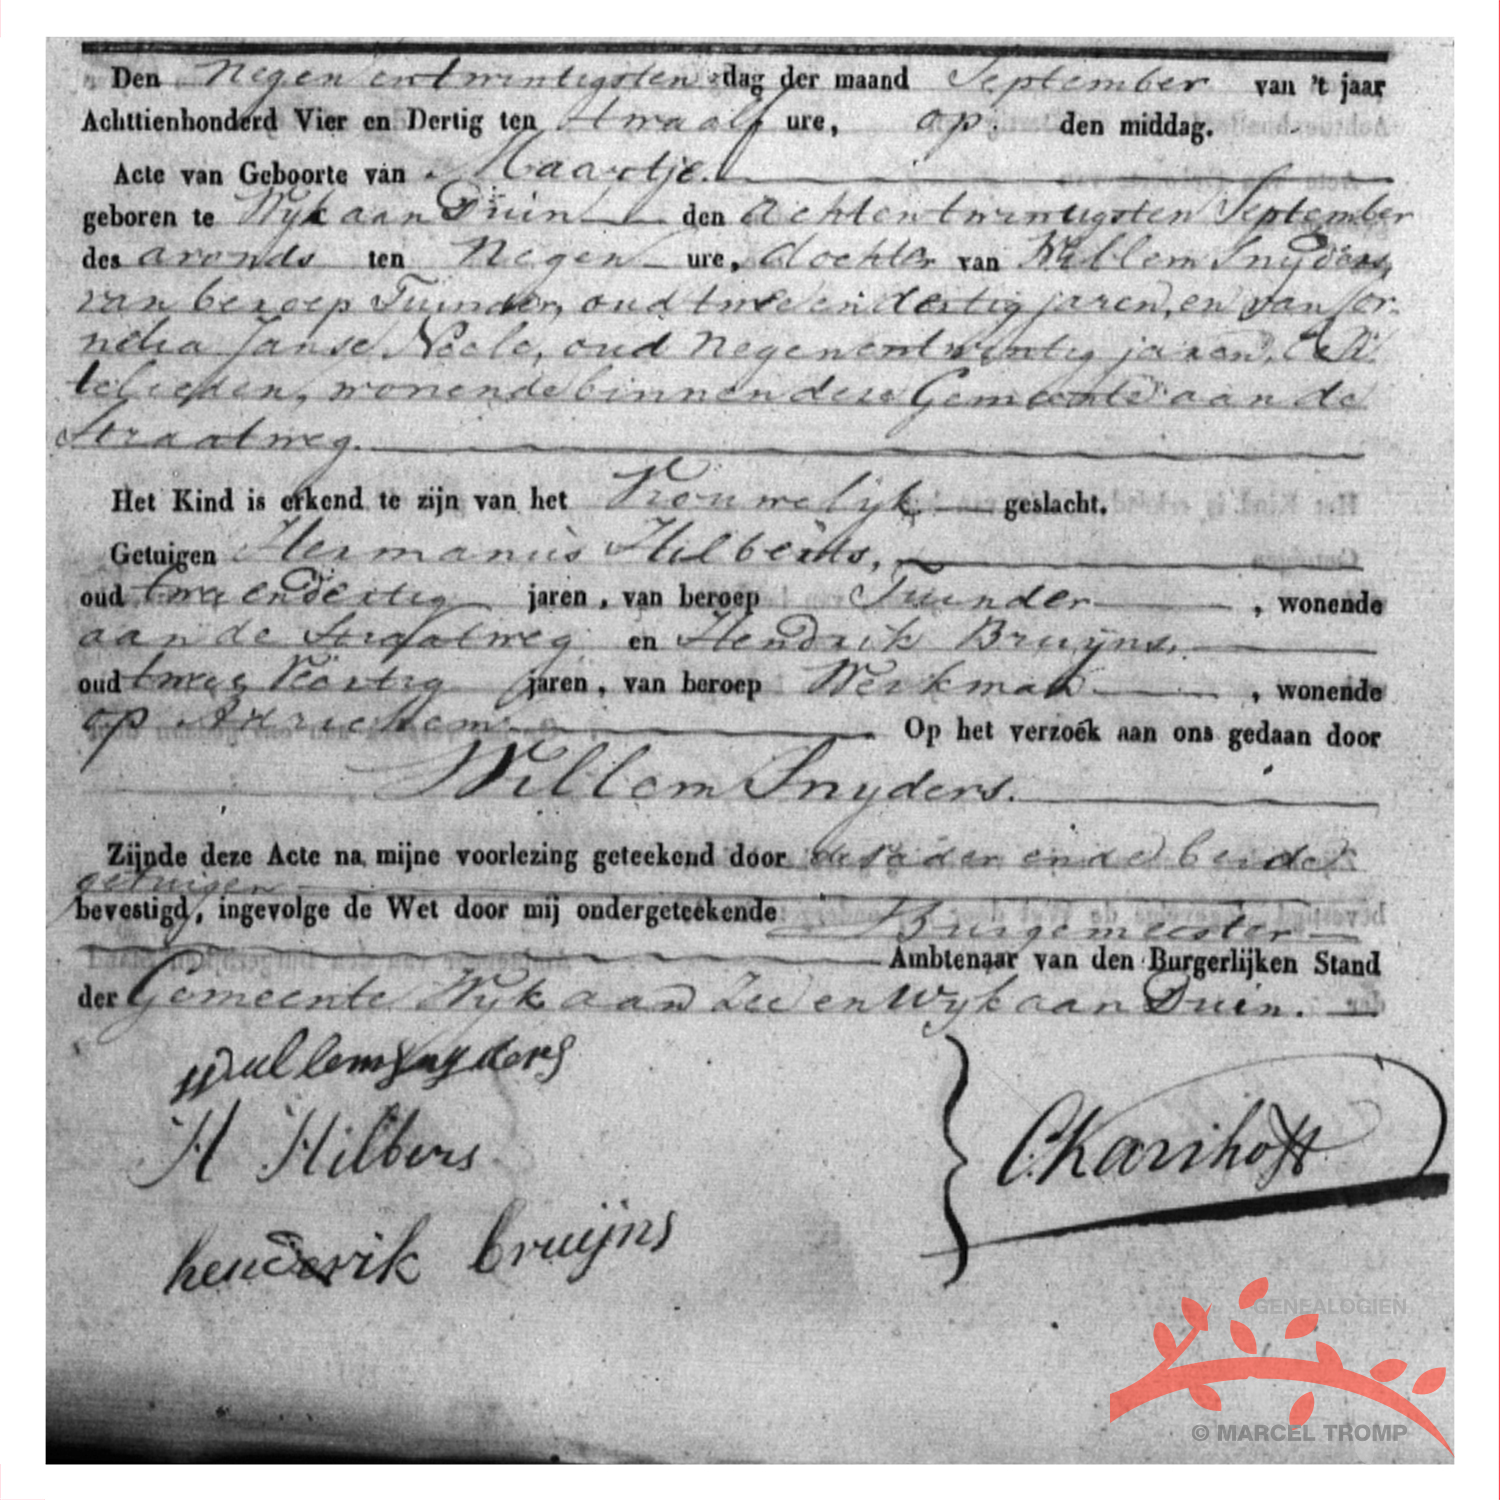 Den Negen en twintigsten dag der maand September van 't jaar
Achttienhonderd Vier en Dertig ten twaalf ure, op den middag.
Acte van Geboorte van Maartje.
geboren te Wyk aan Duin den Achtentwintigsten September
des avonds ten Negen ure, dochter van Willem Snyders,
van beroep Tuinder, oud twee en dertig jaren, en van Cor-
nelia Janse Noele, oud Negenentwintig jaren, Ech-
telieden, wonende binnen deze Gemeente aan de
Straatweg.
Het Kind is erkend te zijn van het Vrouwelyk geslacht.
Getuigen Hermanus Hilbers,
oud twee en dertig jaren, van beroep Tuinder, wonende
aan de Straatweg en Hendrik Bruÿns,
oud twee Veertig jaren, van beroep Werkman, wonende
op Op het verzoek aan ons gedaan door
Willem Snyders.
Zijnde deze Acte na mijne voorlezing geteekend door de vader en de beide
getuigen
bevestigd, ingevolge de Wet door mij ondergeteekende Burgemeester
Ambtenaar van den Burgerlijken Stand
der Gemeente Wyk aan Zee en Wyk aan Duin.
willem snyders
H Hilbers
henderik bruijns
GENEALOGIEN
© MARCEL TROMP